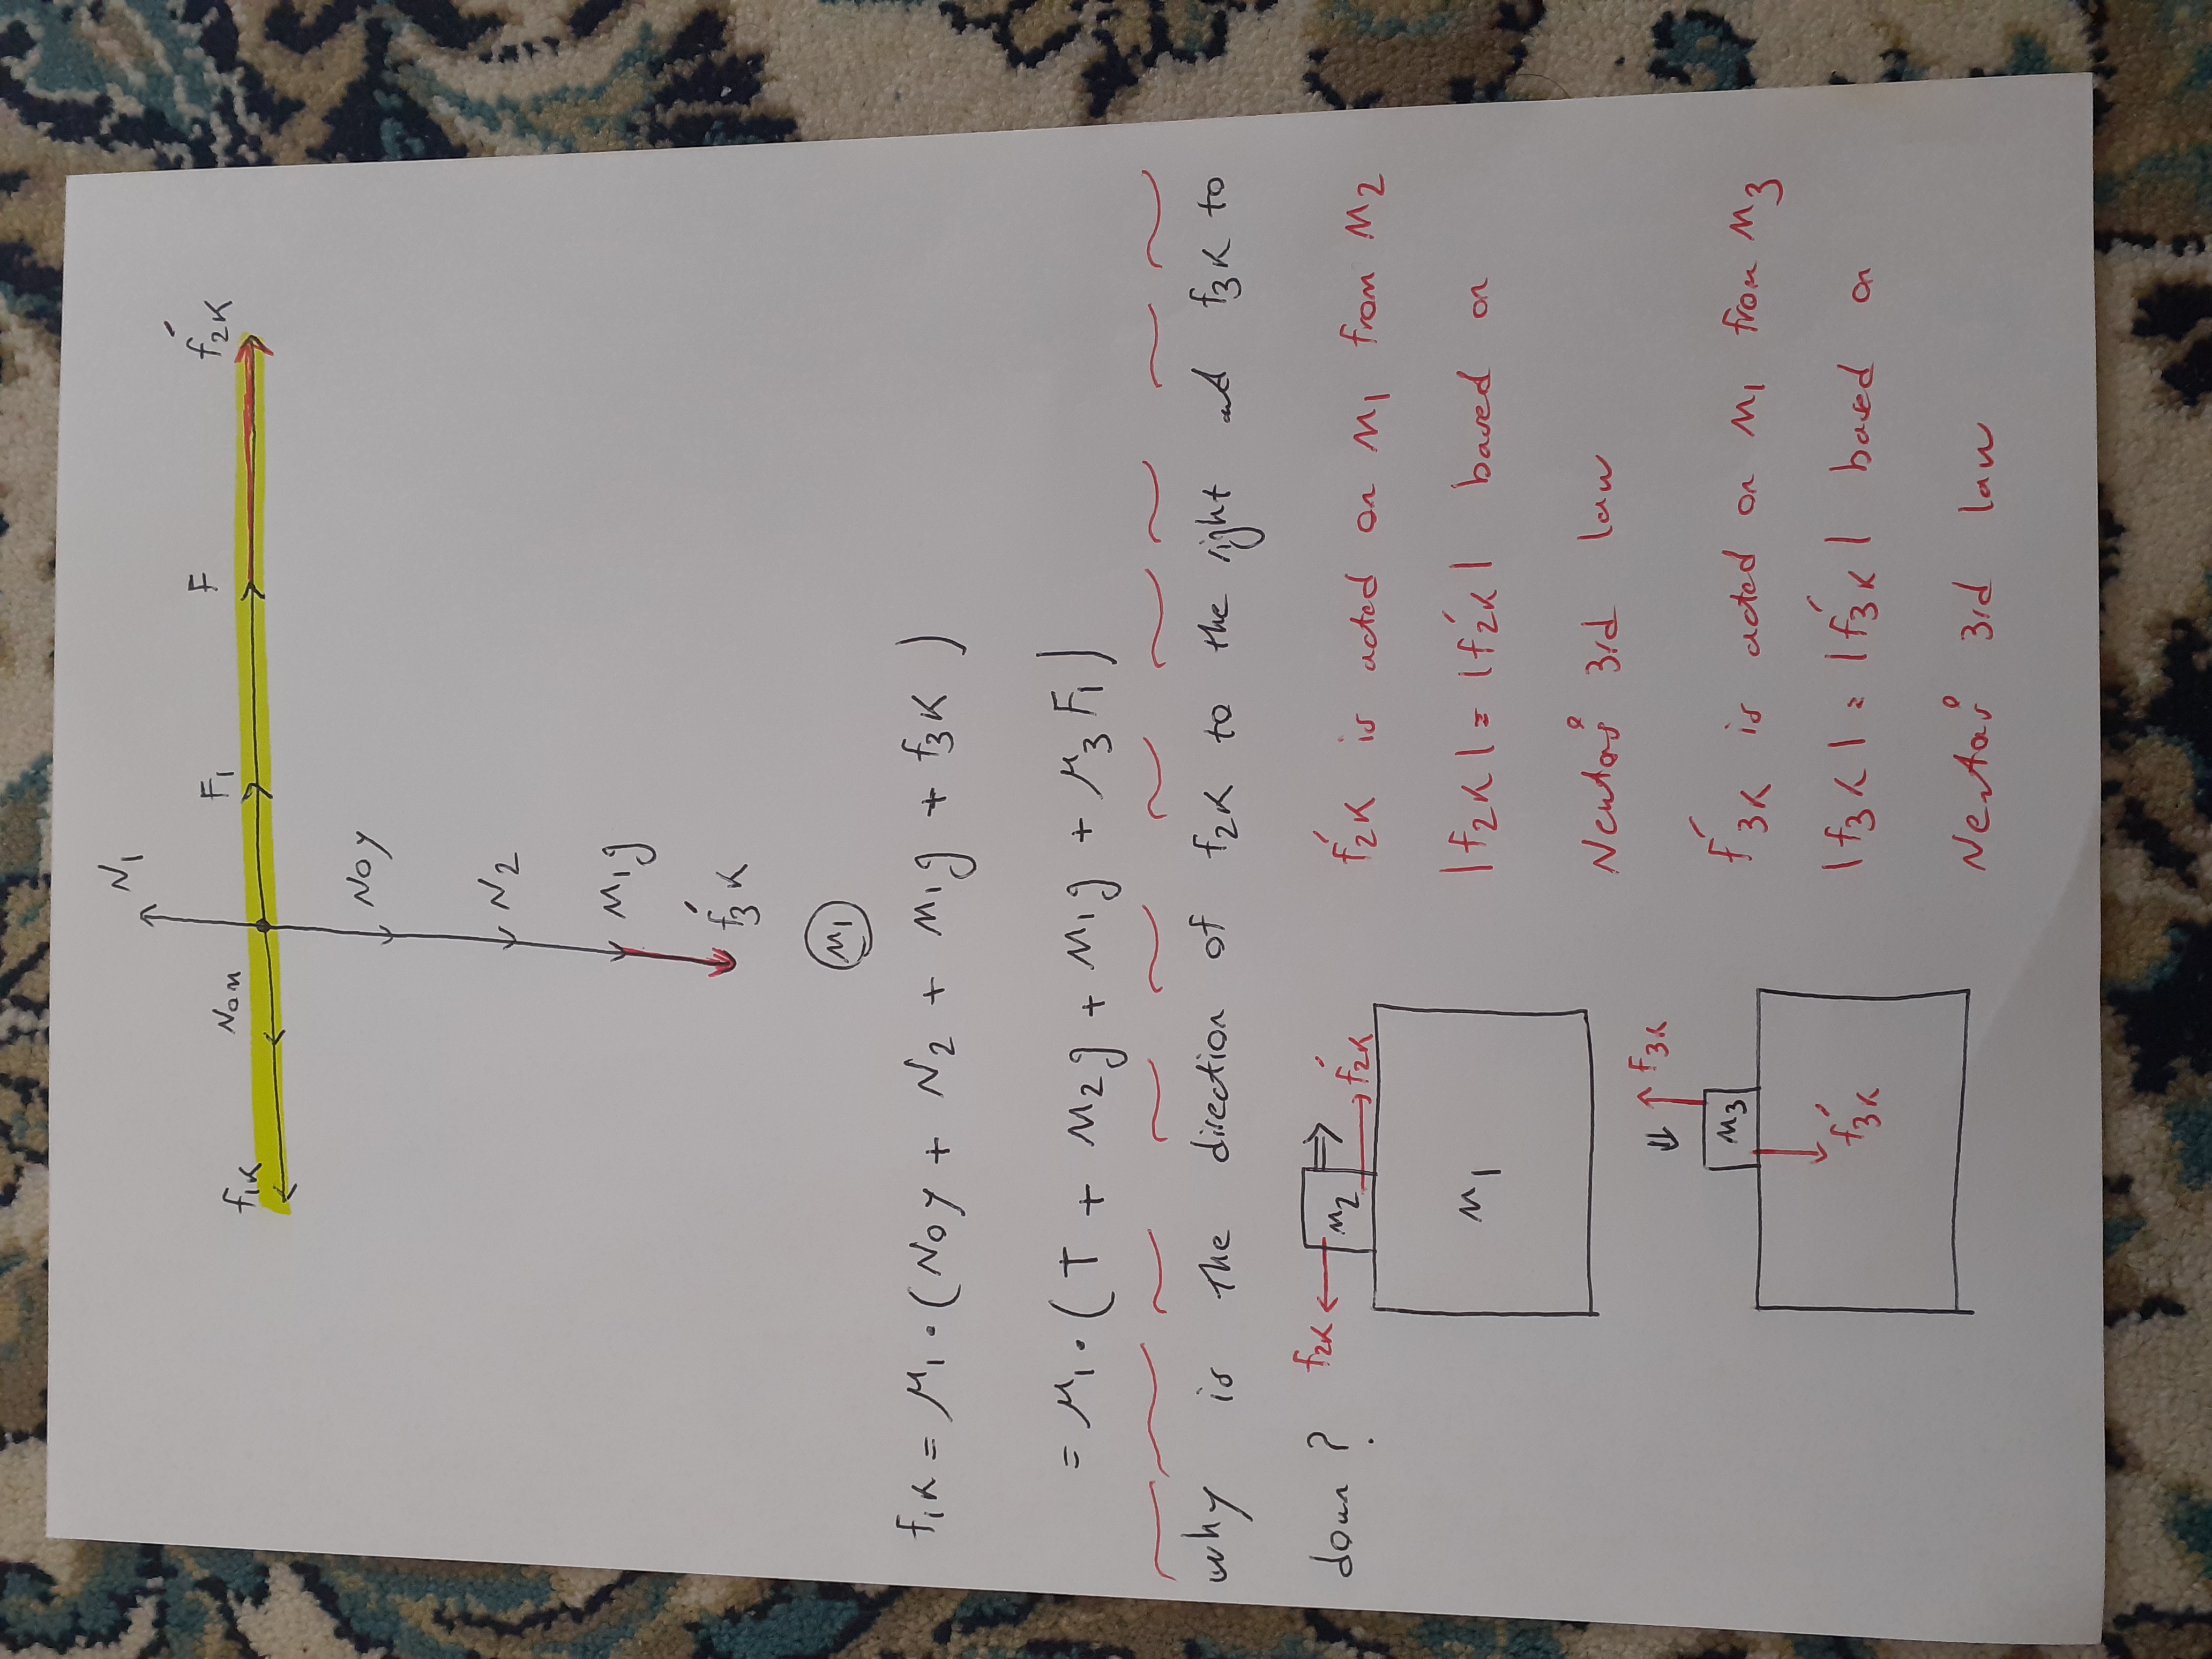 N₁
f₁K Nox F₁ F f́₂K
Noy
N₂
M₁g
f́₃K
M₁
f₁K = μ₁ · (Noy + N₂ + M₁g + f₃K)
= μ₁ · (T + M₂g + M₁g + μ₃F₁)
why is the direction of f₂K to the right and f₃K to
down?
f₂K M₂ f́₂K
M₁
f́₂K is acted on M₁ from M₂
|f₂K| = |f́₂K| based on
Newton's 3rd law
F₃K
M₃
f́₃K
F́₃K is acted on M₁ from M₃
|f₃K| = |f́₃K| based on
Newton's 3rd law